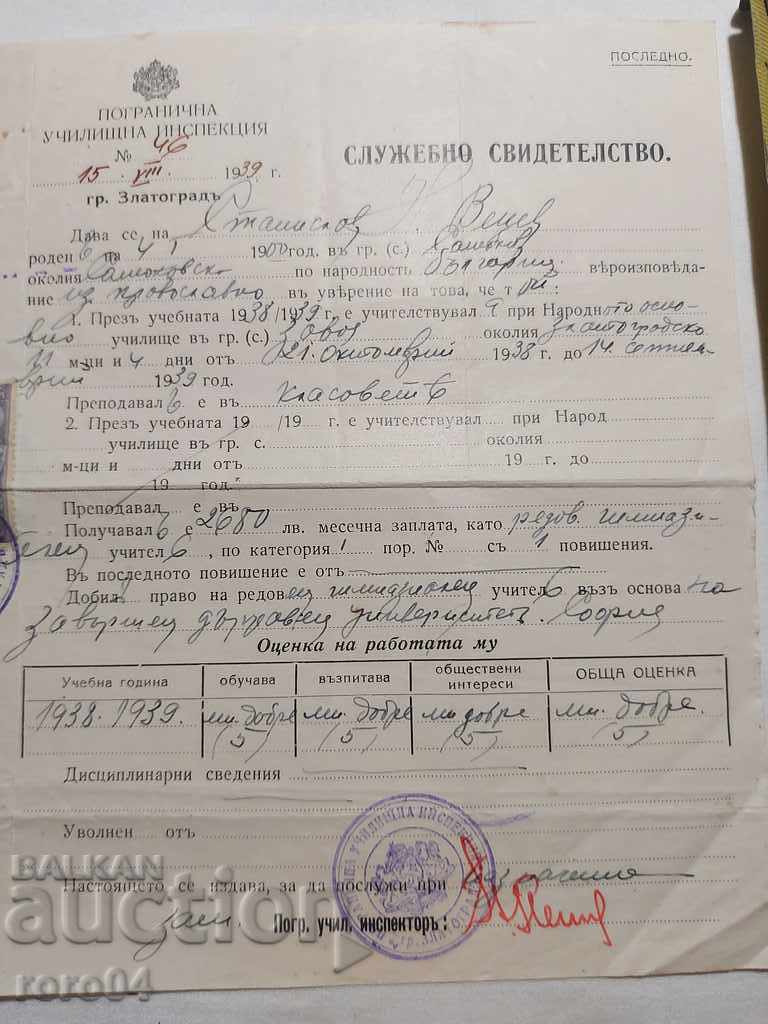 ПОСЛЕДНО.
ПОГРАНИЧНА
УЧИЛИЩНА ИНСПЕКЦИЯ
№ 46
15 VIII. 1939 г.
гр. Златоградъ
СЛУЖЕБНО СВИДЕТЕЛСТВО.
Дава се на Станислав Н. Вецев
роденъ на 4 I 1900 год. въ гр. (с.)
околия Самоковско по народность българин вѣроизповѣда-
ние из. православно въ увѣрение на това, че той:
1. Презъ учебната 1938/1939 г. е учителствувалъ при Народното осно-
вно училище въ гр. (с.) околия златоградско
11 м-ци и 4 дни отъ 21. октомврий 1938 г. до 14. септем-
врий 1939 год.
Преподавалъ е въ класоветѣ
2. Презъ учебната 19 /19 г. е учителствувал при Народ
училище въ гр. с. околия
м-ци и дни отъ 19 г. до
19 год.
Преподавал е въ
Получавалъ е 2680 лв. месечна заплата, като редов. гимнази-
учителъ, по категория I пор. № съ 1 повишения.
Въ последното повишение е отъ
Добилъ право на редовен гимназиален учителъ възъ основа на
завършен държавен университетъ. София
Оценка на работата му
Учебна година обучава възпитава обществени интереси ОБЩА ОЦЕНКА
1938-1939. мн. добре (5) мн. добре (5) мн добре (5) мн. добре. (5)
Дисциплинарни сведения
Уволнен отъ
Настоящето се издава, за да послужи при
зам. Погр. учил. инспекторъ:
BALKAN
auction
roro04